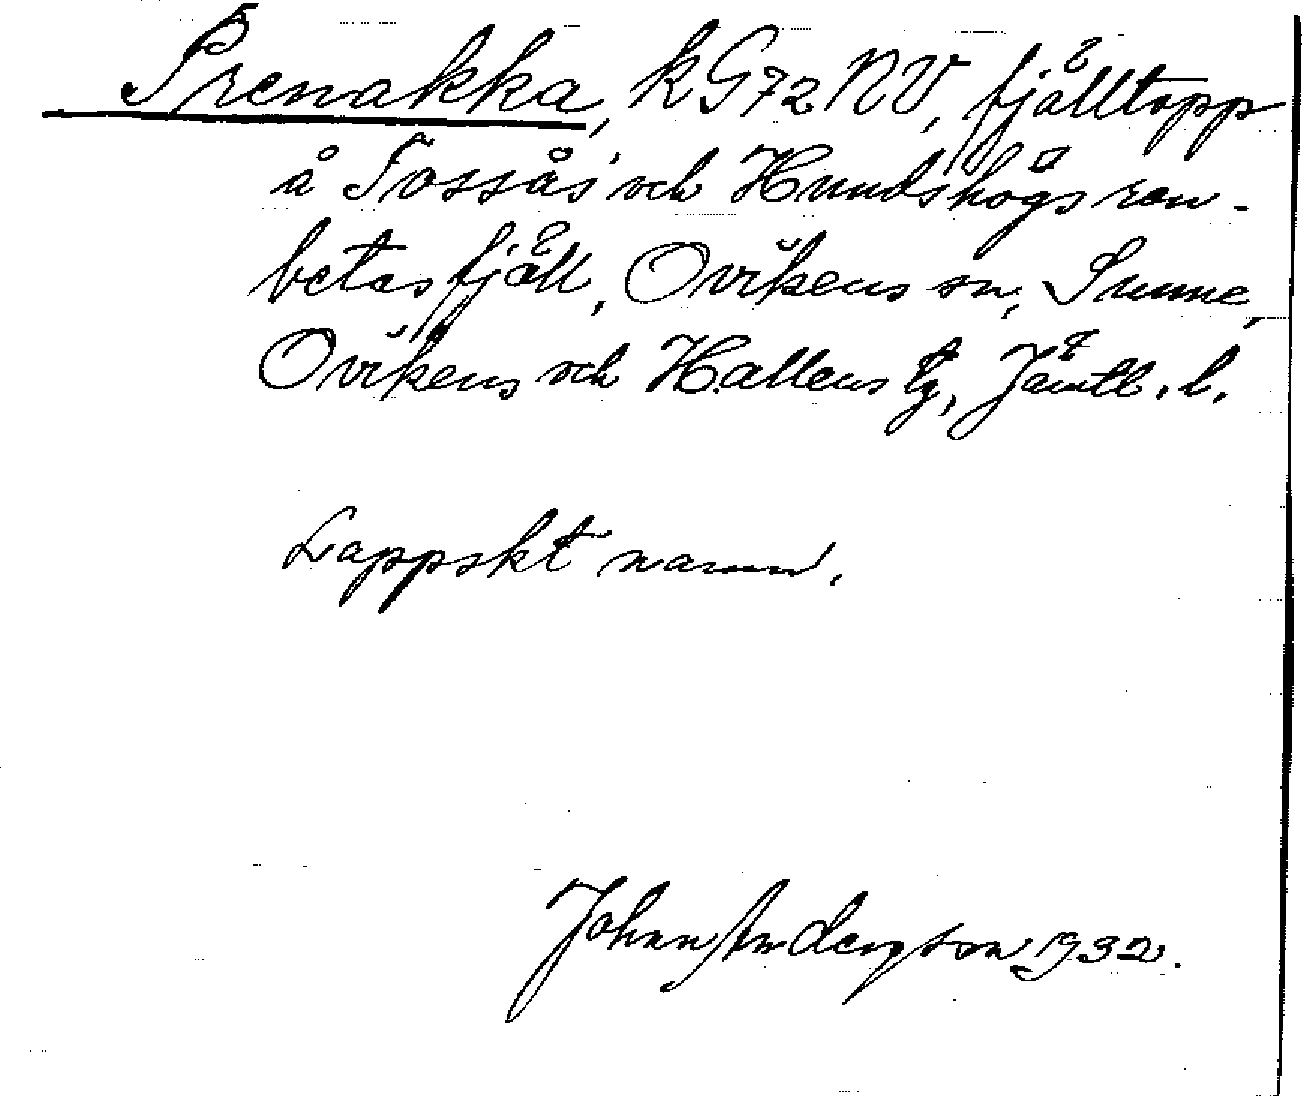 Prenakka, k G72 NV, fjälltopp
å Fossås' och Hundshögs ren-
betesfjäll, Ovikens sn, Sunne,
Ovikens och Hallens tg, Jämtl. l.
Lappskt namn.
Johan Andersson 1932.